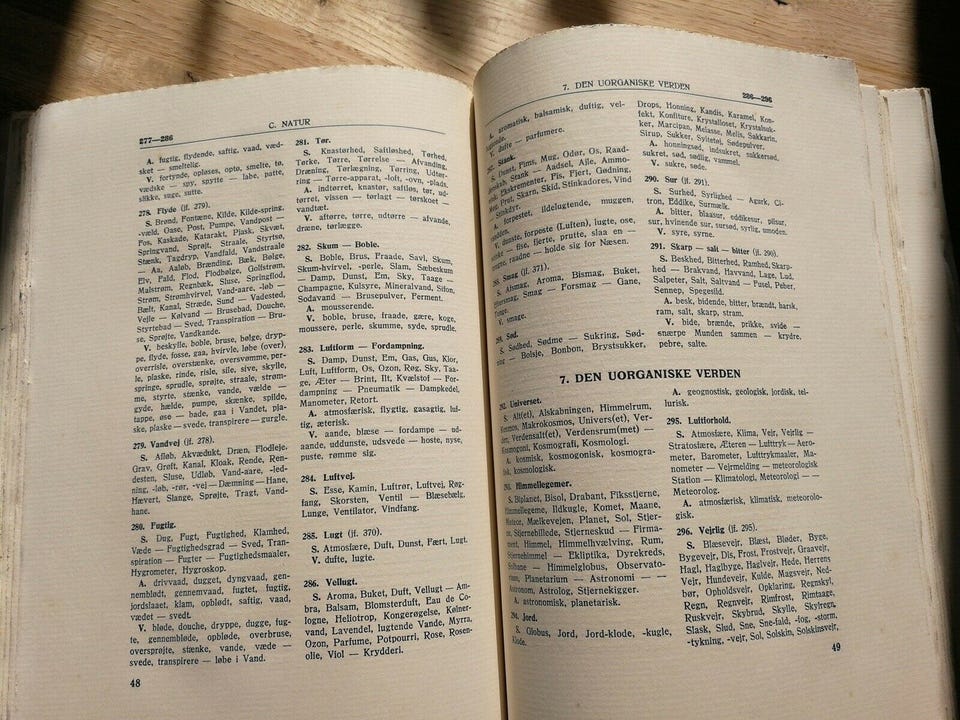 C. NATUR
277—286
A. fugtig, flydende, saftig, vaad, væd-
sket — smeltelig.
V. fortynde, opløses, opto, smelte, tø,
vædske — spy, spytte — labe, patte,
slikke, suge, sutte.
278. Flyde (jf. 279).
S. Brønd, Fontæne, Kilde, Kilde-spring,
-væld, Oase, Post, Pumpe, Vandpost —
Fos, Kaskade, Katarakt, Pjask, Skvæt,
Springvand, Sprøjt, Straale, Styrtsø,
Stænk, Tagdryp, Vandfald, Vandstraale
— Aa, Aaløb, Brænding, Bæk, Bølge,
Elv, Fald, Flod, Flodbølge, Golfstrøm,
Malstrøm, Regnbæk, Sluse, Springflod,
Strøm, Strømhvirvel, Vand-aare, -løb —
Bælt, Kanal, Stræde, Sund — Vadested,
Vejle — Kølvand — Brusebad, Douche,
Styrtebad — Sved, Transpiration — Bru-
se, Sprøjte, Vandkande.
V. beskylle, boble, bruse, bølge, dryp-
pe, flyde, fosse, gaa, hvirvle, løbe (over),
overrisle, overstænke, oversvømme, per-
le, plaske, rinde, risle, sile, sive, skylle,
springe, sprudle, sprøjte, straale, strøm-
me, styrte, stænke, vande, vælde —
gyde, hælde, pumpe, skænke, spilde,
tappe, øse — bade, gaa i Vandet, pja-
ske, plaske — svede, transpirere — gurgle.
279. Vandvej (jf. 278).
S. Afløb, Akvædukt, Dræn, Flodleje,
Grav, Grøft, Kanal, Kloak, Rende, Ren-
desten, Sluse, Udløb, Vand-aare, -led-
ning, -løb, -rør, -vej — Dæmning — Hane,
Hævert, Slange, Sprøjte, Tragt, Vand-
hane.
280. Fugtig.
S. Dug, Fugt, Fugtighed, Klamhed,
Væde — Fugtighedsgrad — Sved, Tran-
spiration — Fugter — Fugtighedsmaaler,
Hygrometer, Hygroskop.
A. drivvaad, dugget, dyngvaad, gen-
nemblødt, gennemvaad, fugtet, fugtig,
jordslaaet, klam, opblødt, saftig, vaad,
vædet — svedt.
V. bløde, douche, dryppe, dugge, fug-
te, gennembløde, opbløde, overbruse,
oversprøjte, stænke, vande, væde —
svede, transpirere — løbe i Vand.
48
281. Tør.
S. Knastørhed, Saftløshed, Tørhed,
Tørke, Tørre, Tørrelse — Afvanding,
Dræning, Tørlægning, Tørring, Udtør-
ring — Tørre-apparat, -loft, -ovn, -plads.
A. indtørret, knastør, saftløs, tør, ud-
tørret, vissen — tørlagt — tørskoet —
vandtæt.
V. aftørre, tørre, udtørre — afvande,
dræne, tørlægge.
282. Skum — Boble.
S. Boble, Brus, Fraade, Savl, Skum,
Skum-hvirvel, -perle, Slam, Sæbeskum
— Damp, Dunst, Em, Sky, Taage —
Champagne, Kulsyre, Mineralvand, Sifon,
Sodavand — Brusepulver, Ferment.
A. mousserende.
V. boble, bruse, fraade, gære, koge,
moussere, perle, skumme, syde, sprudle.
283. Luftform — Fordampning.
S. Damp, Dunst, Em, Gas, Gus, Klor,
Luft, Luftform, Os, Ozon, Røg, Sky, Taa-
ge, Æter — Brint, Ilt, Kvælstof — For-
dampning — Pneumatik — Dampkedel,
Manometer, Retort.
A. atmosfærisk, flygtig, gasagtig, luf-
tig, æterisk.
V. aande, blæse — fordampe — ud-
aande, uddunste, udsvede — hoste, nyse,
puste, rømme sig.
284. Luftvej.
S. Esse, Kamin, Luftrør, Luftvej, Røg-
fang, Skorsten, Ventil — Blæsebælg,
Lunge, Ventilator, Vindfang.
285. Lugt (jf. 370).
S. Atmosfære, Duft, Dunst, Fært, Lugt.
V. dufte, lugte.
286. Vellugt.
S. Aroma, Buket, Duft, Vellugt — Am-
bra, Balsam, Blomsterduft, Eau de Co-
logne, Heliotrop, Kongerøgelse, Kølner-
vand, Lavendel, lugtende Vande, Myrra,
Ozon, Parfume, Potpourri, Rose, Rosen-
olie, Viol — Krydderi.
7. DEN UORGANISKE VERDEN
286—296
A. aromatisk, balsamisk, duftig, vel-
V. dufte — parfumere.
Stank.
S. Dunst, Fims, Mug, Odør, Os, Raad-
Stank — Aadsel, Ajle, Ammo-
Ekskrementer, Pis, Fjert, Gødning,
Prut, Skarn, Skid, Stinkadores, Vind
Stinkdyr.
A. forpestet, ildelugtende, muggen,
V. dunste, forposte (Luften), lugte, ose,
fise, fjerte, prutte, slaa en —
raadne — holde sig for Næsen.
Smag (jf. 371).
S. Afsmag, Aroma, Bismag, Buket,
Eftersmag, Smag — Forsmag — Gane,
Tunge.
V. smage.
Sød.
S. Sødhed, Sødme — Sukring, Sød-
— Bolsje, Bonbon, Brystsukker,
Drops, Honning, Kandis, Karamel, Kon-
fekt, Konfiture, Krystalloset, Krystalsuk-
ker, Marcipan, Melasse, Melis, Sakkarin,
Sirup, Sukker, Syltetøj, Sødepulver.
A. honningsød, indsukret, sukkersød,
sukret, sød, sødlig, vammel.
V. sukre, søde.
290. Sur (jf. 291).
S. Surhed, Syrlighed — Agurk, Ci-
tron, Eddike, Surmælk.
A. bitter, blaasur, eddikesur, pilsur,
sur, hvinende sur, sursød, syrlig, umoden.
V. syre, syrne.
291. Skarp — salt — bitter (jf. 290).
S. Beskhed, Bitterhed, Ramhed, Skarp-
hed — Brakvand, Havvand, Lage, Lud,
Salpeter, Salt, Saltvand — Pusel, Peber,
Sennep, Spegesild.
A. besk, bidende, bitter, brændt, harsk,
ram, salt, skarp, stram.
V. bide, brænde, prikke, svide —
snærpe Munden sammen — krydre,
pebre, salte.
7. DEN UORGANISKE VERDEN
292. Universet.
S. Alt(et), Alskabningen, Himmelrum,
Kosmos, Makrokosmos, Univers(et), Ver-
den, Verdensalt(et), Verdensrum(met) —
Kosmogoni, Kosmografi, Kosmologi.
A. kosmisk, kosmogonisk, kosmogra-
fisk, kosmologisk.
293. Himmellegemer.
S. Biplanet, Bisol, Drabant, Fiksstjerne,
Himmellegeme, Ildkugle, Komet, Maane,
Meteor, Mælkevejen, Planet, Sol, Stjer-
ne, Stjernebillede, Stjerneskud — Firma-
ment, Himmel, Himmelhvælving, Rum,
Stjernehimmel — Ekliptika, Dyrekreds,
Solbane — Himmelglobus, Observato-
rium, Planetarium — Astronomi — —
Astronom, Astrolog, Stjernekigger.
A. astronomisk, planetarisk.
294. Jord.
S. Globus, Jord, Jord-klode, -kugle,
Klode.
A. geognostisk, geologisk, jordisk, tel-
lurisk.
295. Luftforhold.
S. Atmosfære, Klima, Vejr, Vejrlig —
Stratosfære, Æteren — Lufttryk — Aero-
meter, Barometer, Lufttrykmaaler, Ma-
nometer — Vejrmelding — meteorologisk
Station — Klimatologi, Meteorologi — —
Meteorolog.
A. atmosfærisk, klimatisk, meteorolo-
gisk.
296. Vejrlig (jf. 295).
S. Blæsevejr, Blæst, Bløder, Byge,
Bygevejr, Dis, Frost, Frostvejr, Graavejr,
Hagl, Haglbyge, Haglvejr, Hede, Herrens
Vejr, Hundevejr, Kulde, Magsvejr, Ned-
bør, Opholdsvejr, Opklaring, Regnskyl,
Regn, Regnvejr, Rimfrost, Rimtaage,
Ruskvejr, Skybrud, Skylle, Skylregn,
Slask, Slud, Sne, Sne-fald, -fog, -storm,
-tykning, -vejr, Sol, Solskin, Solskinsvejr,
49